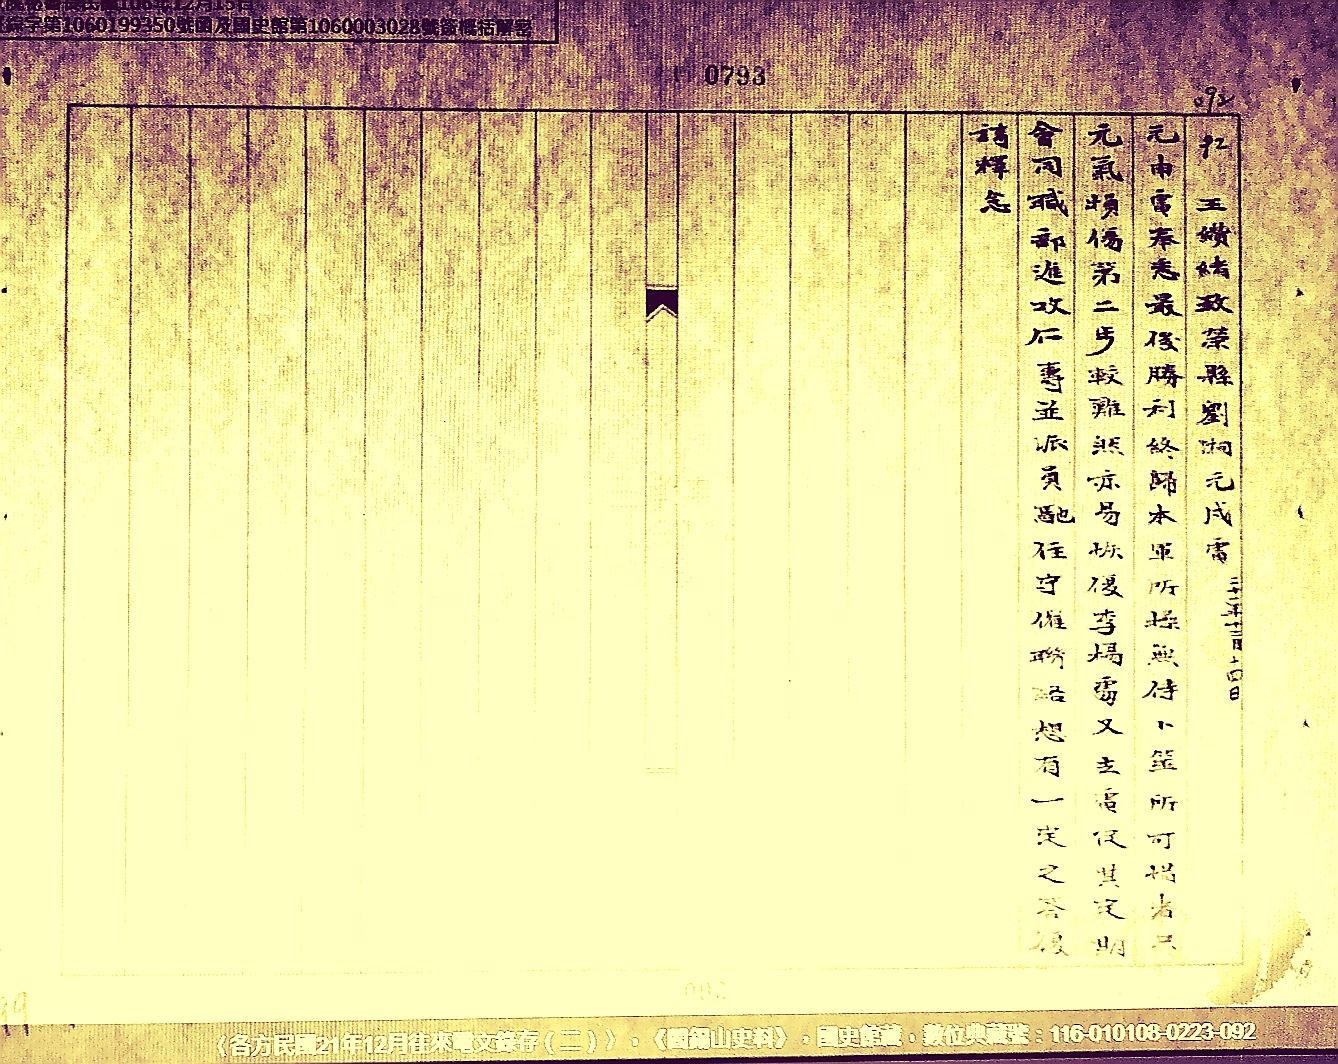 綜字第1060199350號函及國史館第1060003028號簽概括解密
0793
092
王纘緒致榮縣劉湘元戌電 二十一年十二月十四日
元申電奉悉最後勝利終歸本軍所操無待卜筮所可惜者只
元氣損傷第二步較難然亦易恢復李楊處又去電促其定期
會同職部進攻仁壽並派員馳往守催聯絡想有一定之答復
請釋念
《各方民國21年12月往來電文錄存(二)》,《閻錫山史料》,國史館藏,數位典藏號:116-010108-0223-092